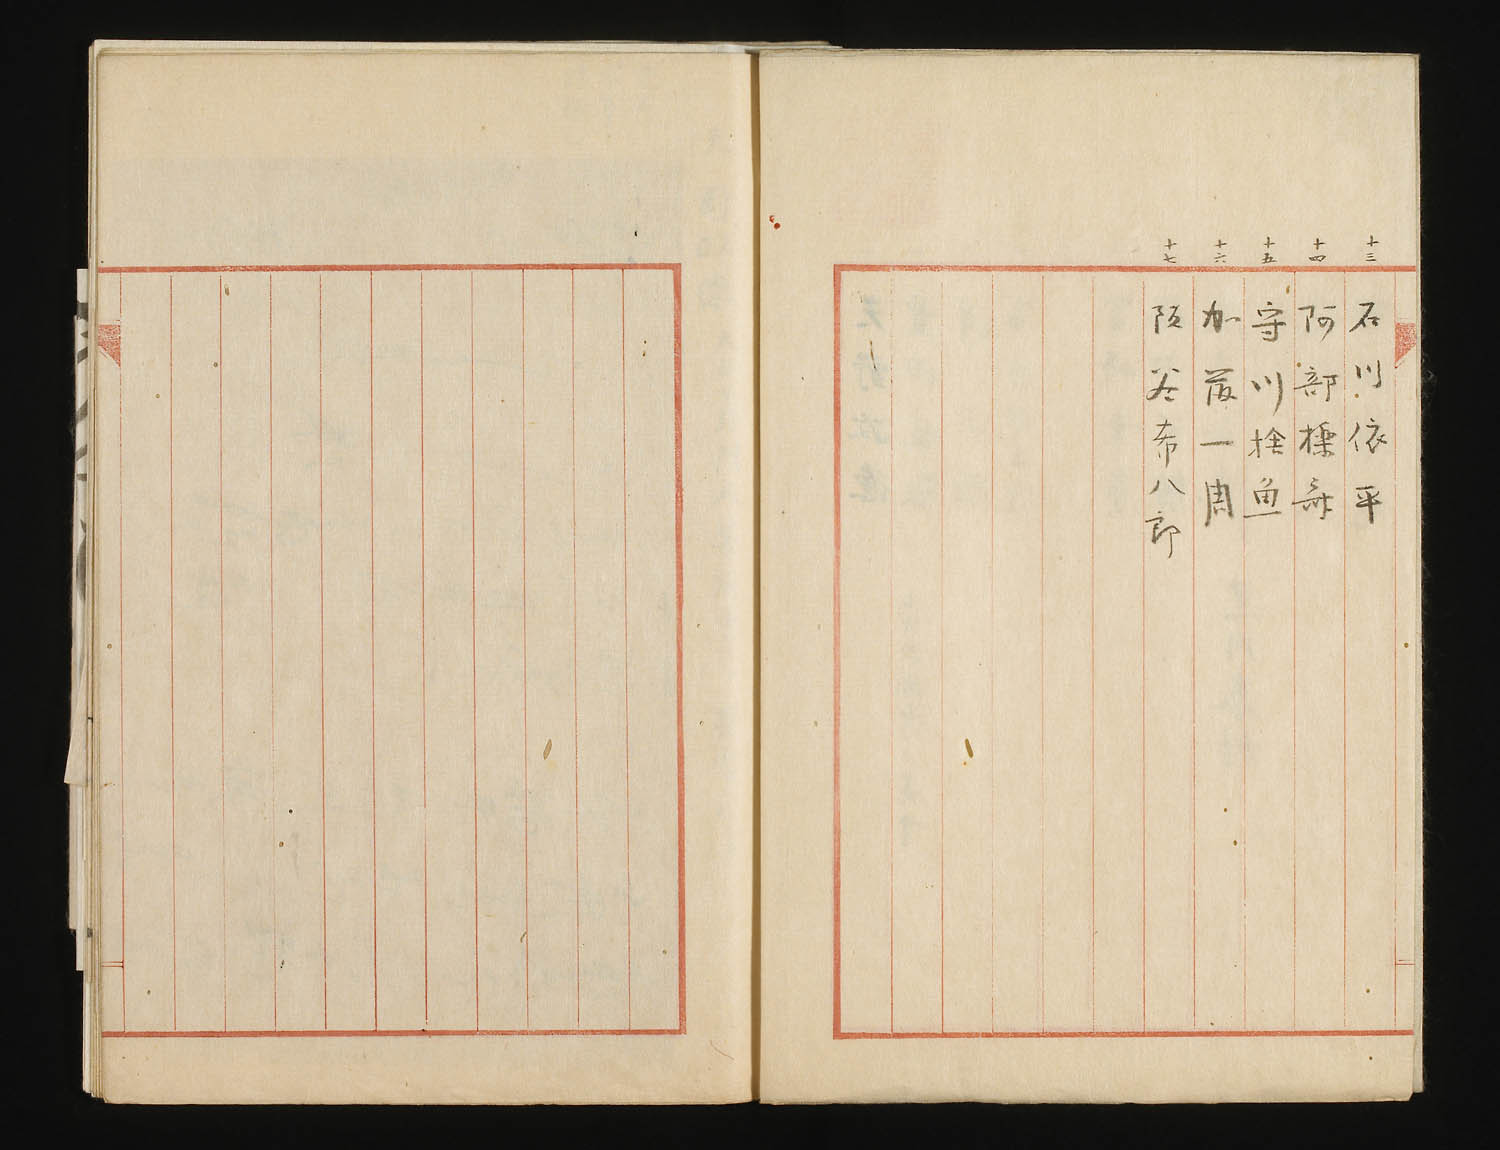 十三 石川依平
十四 阿部櫟斎
十五 守川捨魚
十六 加藤一周
十七 阪谷希八郎